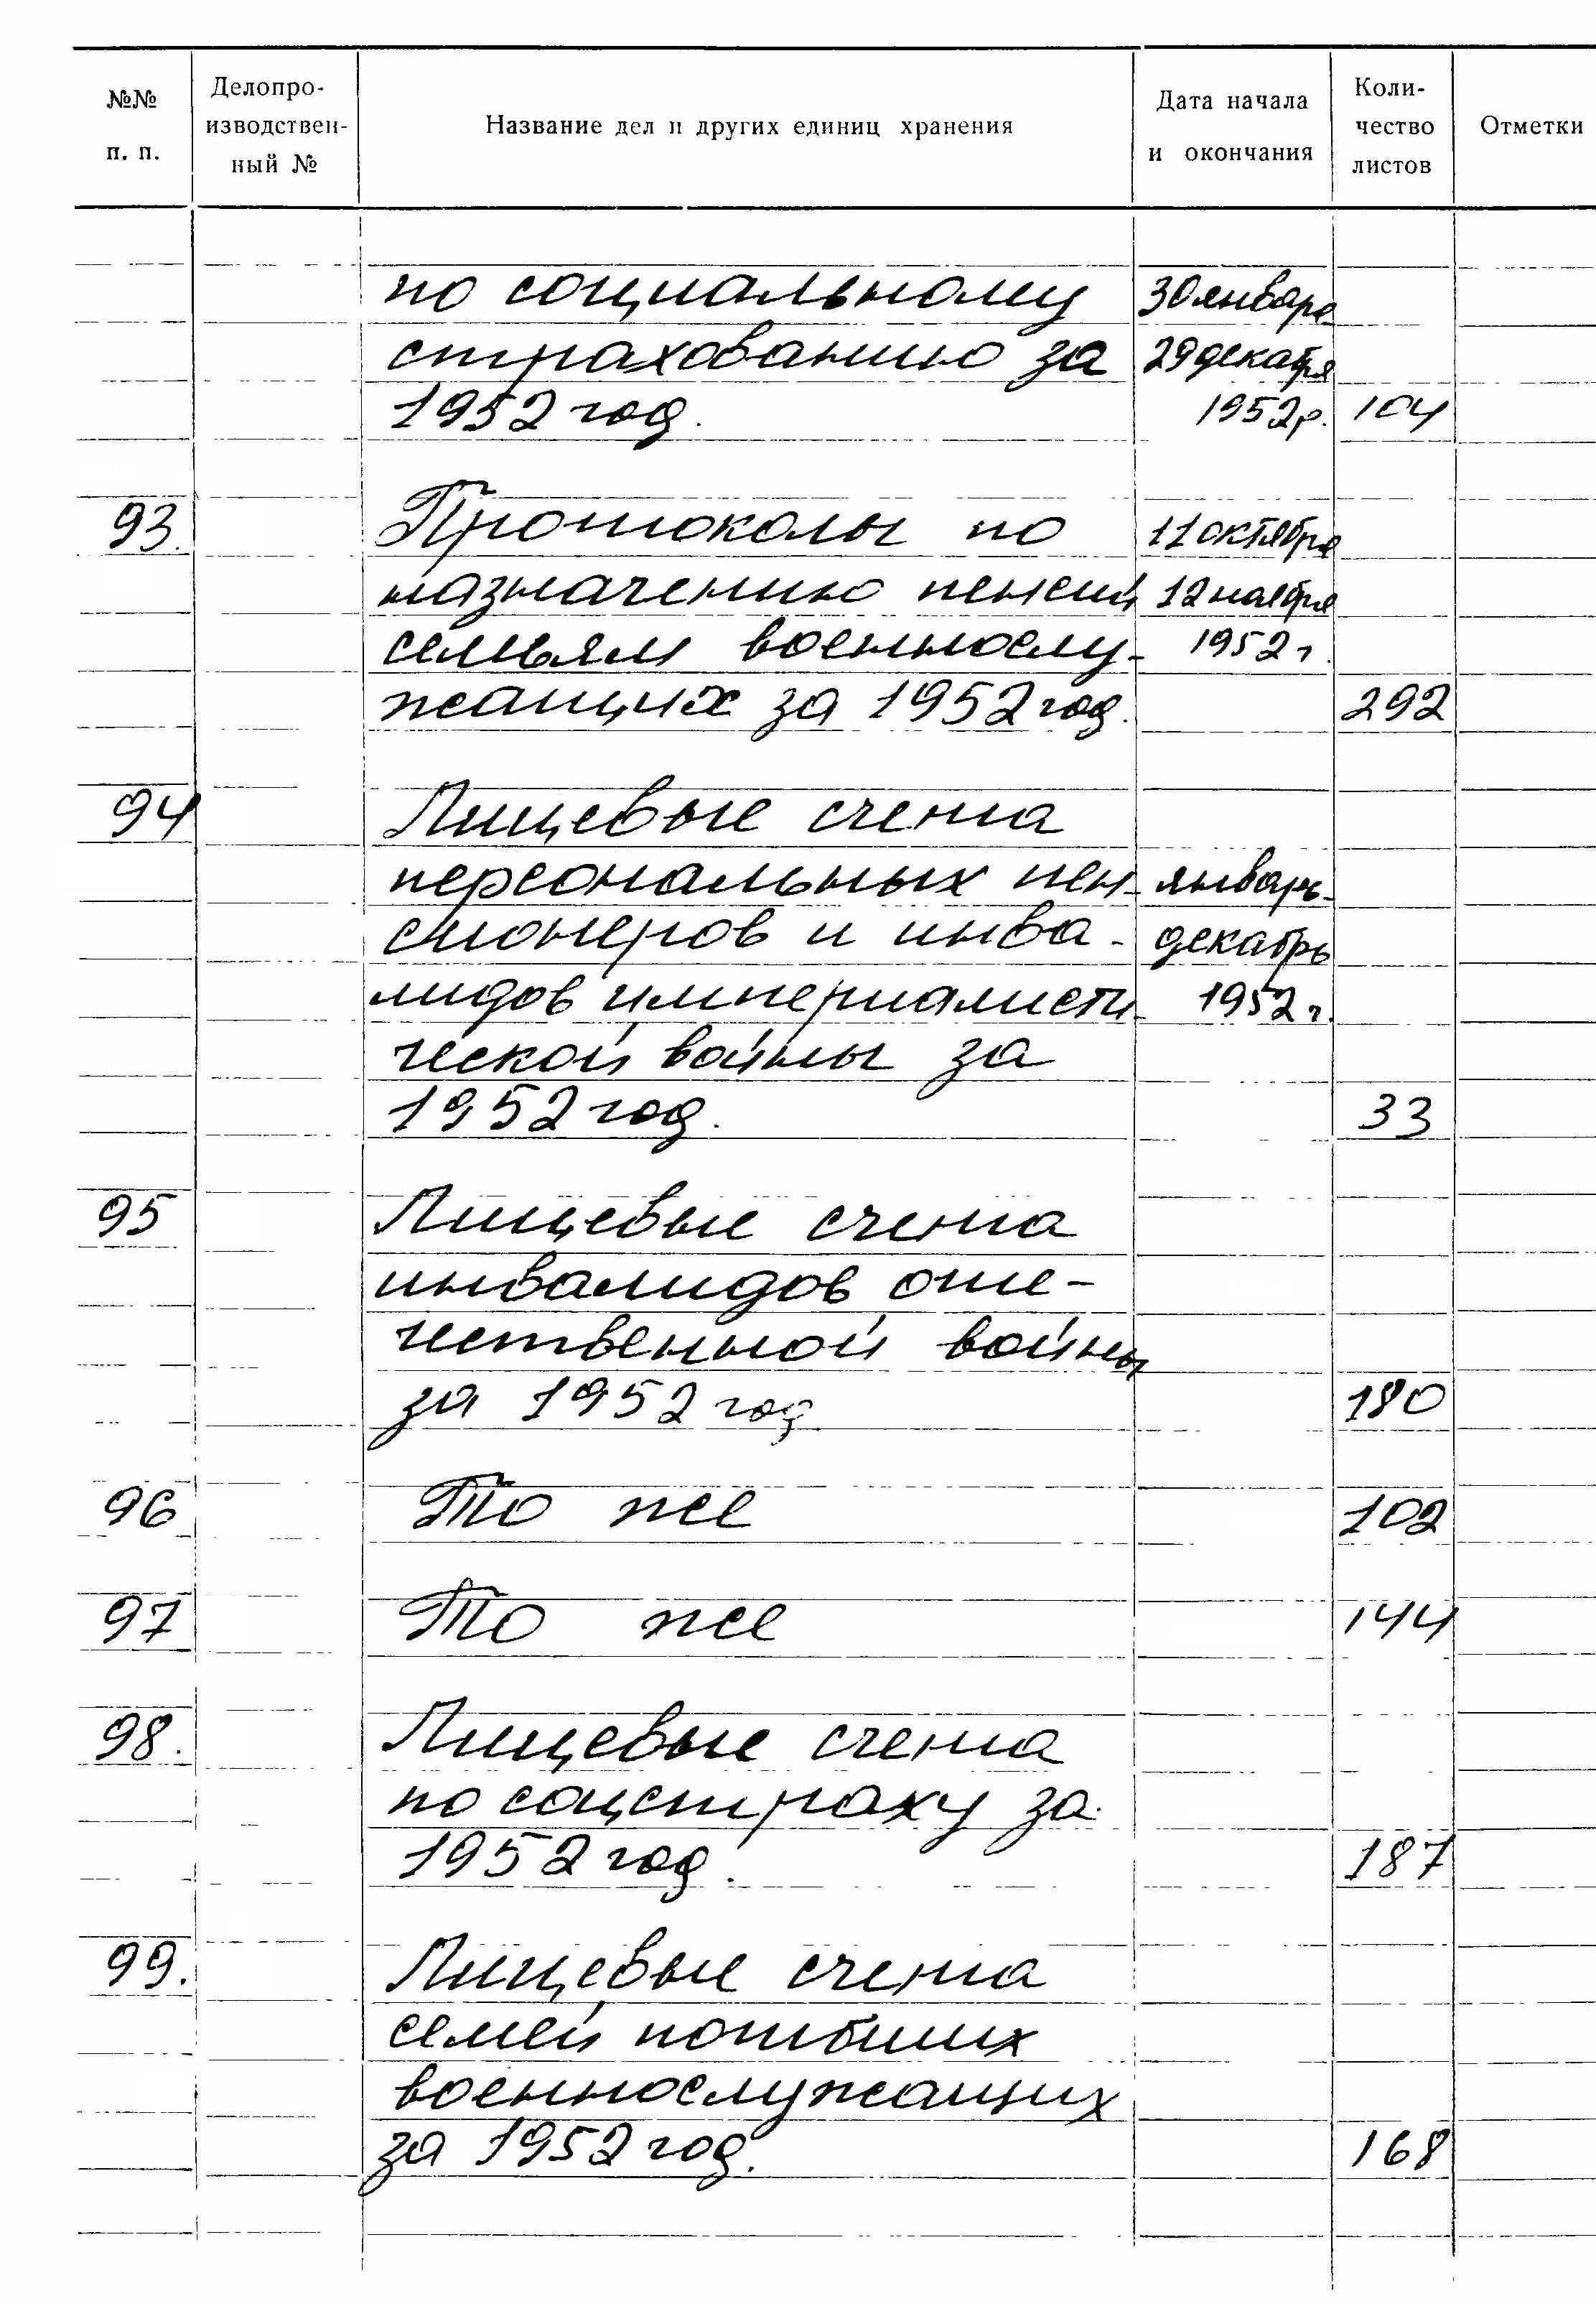 №№ п. п.
Делопро-
изводствен-
ный №
Название дел и других единиц хранения
Дата начала
и окончания
Коли-
чество
листов
Отметки
по социальному 30 января
страхованию за 29 декабря
1952 год. 1952г. 104
93. Протоколы по 11 октября
назначению пенсий 12 ноября
семьям военнослу- 1952 г.
жащих за 1952 год. 292
94 Лицевые счета
персональных пен- январь-
сионеров и инва- декабрь
лидов империалисти- 1952 г.
ческой войны за
1952 год. 33
95 Лицевые счета
инвалидов оте-
чественной войны
за 1952 год 180
96 То же 102
97 То же 144
98. Лицевые счета
по соцстраху за
1952 год. 187
99. Лицевые счета
семей погибших
военнослужащих
за 1952 год. 168